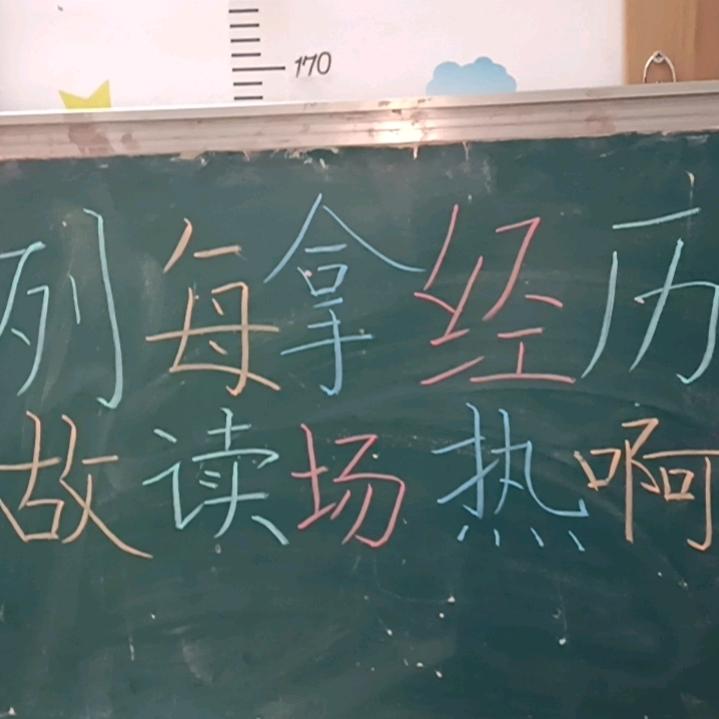 170
列每拿经历
故读场热啊